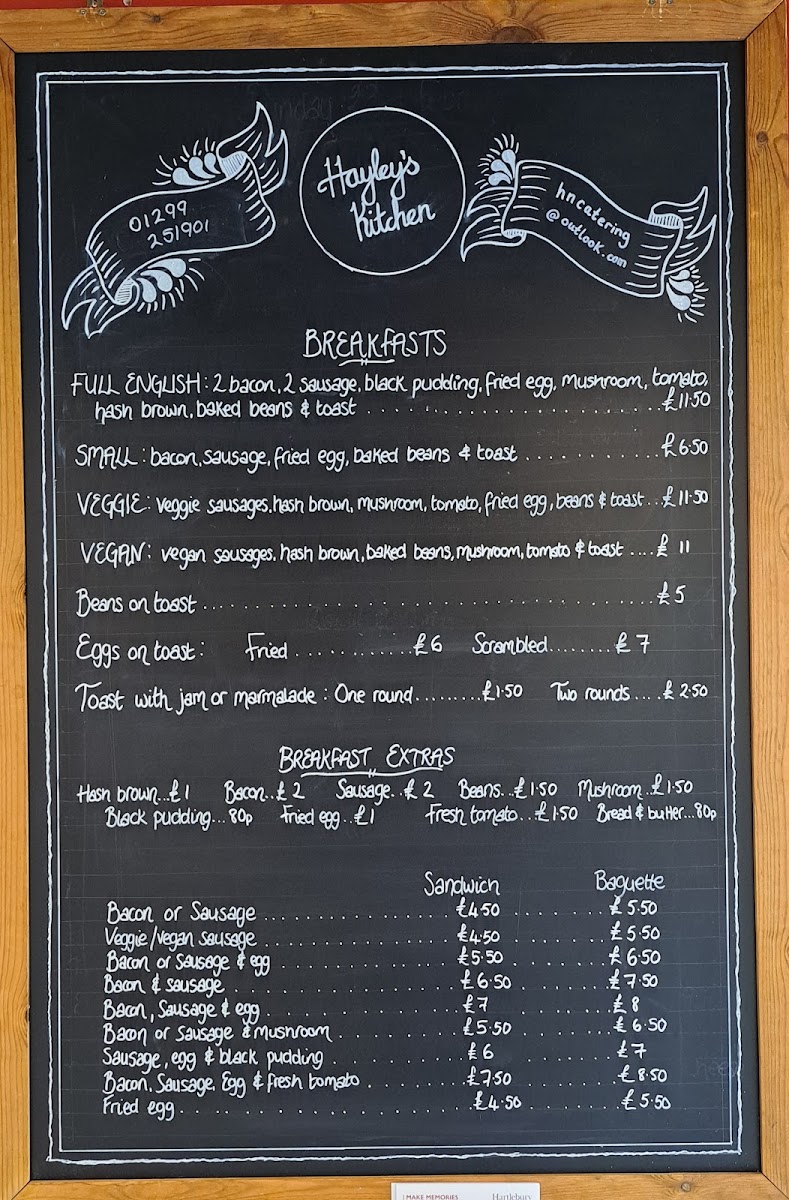 01299
251901
Hayley's
Kitchen
hncatering
@outlook.com
BREAKFASTS
FULL ENGLISH: 2 bacon, 2 sausage, black pudding, fried egg, mushroom, tomato,
hash brown, baked beans & toast .......... £11.50
SMALL: bacon, sausage, fried egg, baked beans & toast .......... £6.50
VEGGIE: veggie sausages, hash brown, mushroom, tomato, fried egg, beans & toast ... £11.50
VEGAN: vegan sausages, hash brown, baked beans, mushroom, tomato & toast .... £ 11
Beans on toast .......... £5
Eggs on toast: Fried .......... £6 Scrambled ........ £7
Toast with jam or marmalade: One round ......... £1.50 Two rounds .... £2.50
BREAKFAST EXTRAS
Hash brown...£1 Bacon..£2 Sausage..£2 Beans...£1.50 Mushroom..£1.50
Black pudding...80p Fried egg...£1 Fresh tomato...£1.50 Bread & butter...80p
Sandwich Baguette
Bacon or Sausage .......... £4.50 .......... £5.50
Veggie/vegan sausage .......... £4.50 .......... £5.50
Bacon or Sausage & egg .......... £5.50 .......... £6.50
Bacon & sausage .......... £6.50 .......... £7.50
Bacon, Sausage & egg .......... £7 .......... £8
Bacon or Sausage & mushroom .......... £5.50 .......... £6.50
Sausage, egg & black pudding .......... £6 .......... £7
Bacon, Sausage, Egg & fresh tomato .......... £7.50 .......... £8.50
Fried egg .......... £4.50 .......... £5.50
MAKE MEMORIES Hartlebury